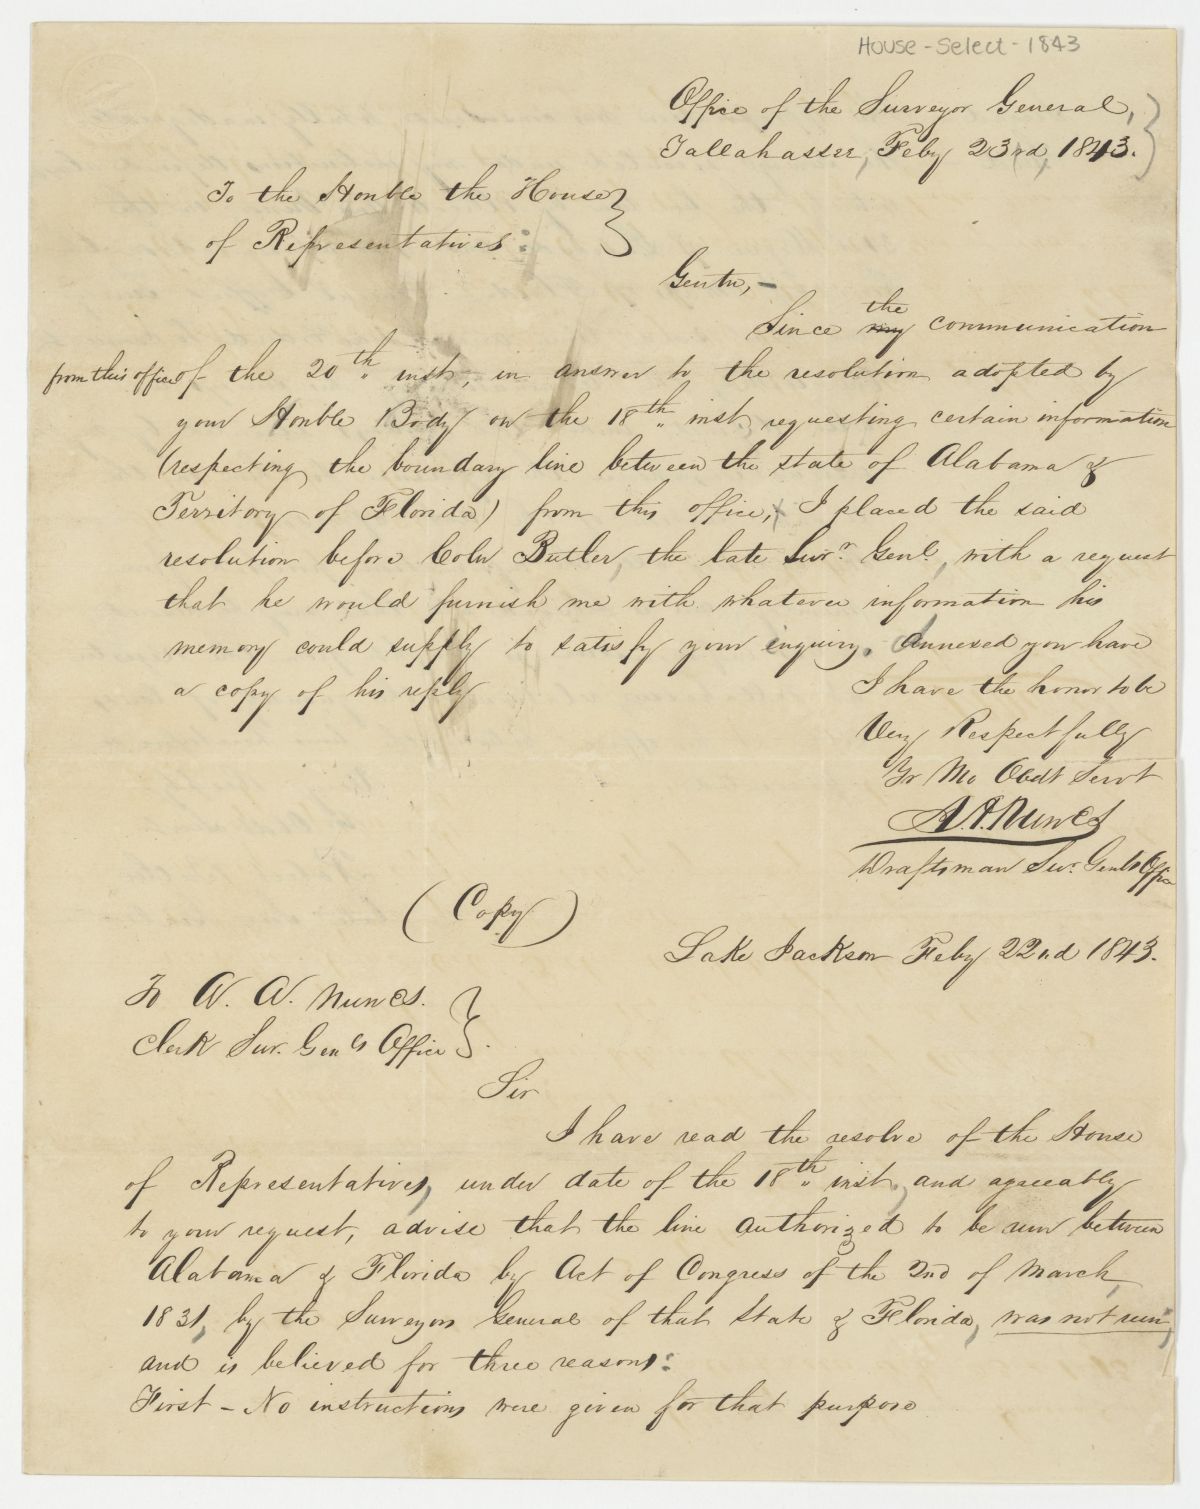 House - Select - 1843
Office of the Surveyor General,
Tallahassee, Feby 23rd, 1843.
To the Honble the House
of Representatives:
Gentn, -
the
Since my communication
from this office of the 20th inst, in answer to the resolution adopted by
your Honble Body on the 18th inst, requesting certain information
(respecting the boundary line between the state of Alabama &
Territory of Florida) from this office, I placed the said
resolution before Coln Butler, the late Surr. Genl, with a request
that he would furnish me with whatever information his
memory could supply to satisfy your enquiry. Annexed you have
a copy of his reply
I have the honor to be
Very Respectfully
Yr Mo Obdt Servt
A. A. Nunes
Draftsman Sur. Genls Office
(Copy)
Lake Jackson Feby 22nd 1843.
To A. A. Nunes.
Clerk Sur. Genls Office
Sir
I have read the resolve of the House
of Representatives, under date of the 18th inst, and agreeably
to your request, advise that the line authorized to be run between
Alabama & Florida by Act of Congress of the 2nd of March,
1831, by the Surveyors General of that State & Florida, was not run,
and is believed for three reasons:
First - No instructions were given for that purpose